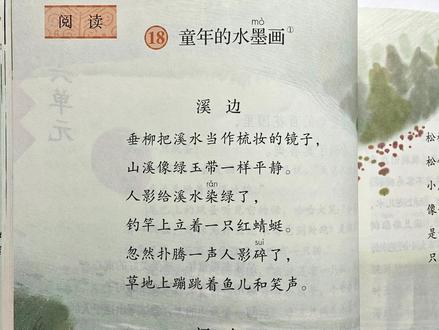 阅 读
mò
18 童年的水墨画①
溪 边
垂柳把溪水当作梳妆的镜子，
山溪像绿玉带一样平静。
rǎn
人影给溪水染绿了，
钓竿上立着一只红蜻蜓。
suì
忽然扑腾一声人影碎了，
草地上蹦跳着鱼儿和笑声。
松
松
小
像
是
只